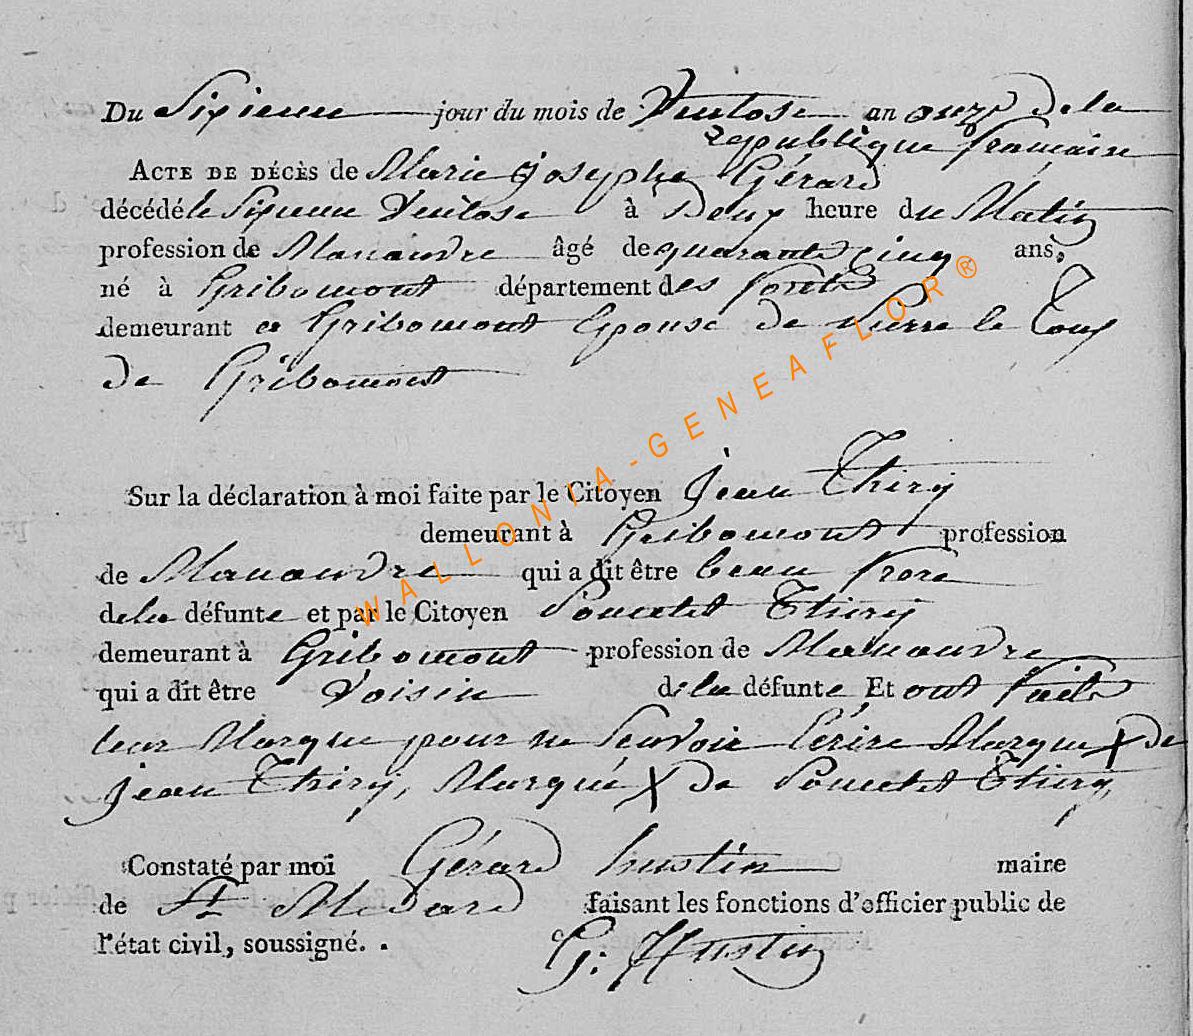 Du Sixieme jour du mois de Ventose an onze de la
republique francaise
ACTE DE DÉCÈS de Marie josephe Gérard
décédé le Sixieme Ventose à Deux heure du Matin
profession de Manaudre âgé de quarante cinq ans,
né à Gribomont département des forets
demeurant a Gribomont Epouse de Pierre le Loup
de Gribomont
Sur la déclaration à moi faite par le Citoyen jean Thiry
demeurant à Gribomont profession
de Manaudre qui a dit être beau frere
de la défunte et par le Citoyen Poncelet Thiery
demeurant à Gribomont profession de Manaudre
qui a dit être Voisin de la défunte Et ont fait
leur Marque pour ne Scavoir Ecrire Marque X de
jean Thiry, Marque X de Poncelet Thiery,
Constaté par moi Gérard hustin maire
de St Medard faisant les fonctions d'officier public de
l'état civil, soussigné.
G: Hustin
WALLONIA-GENEAFLOR®